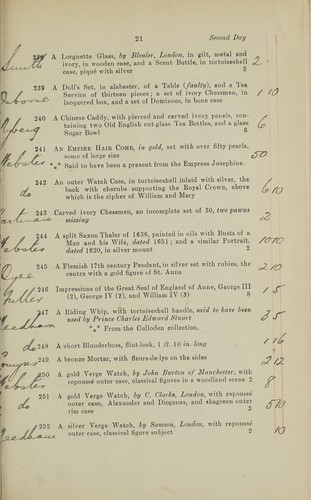 21 Second Day
Smith 238 A Lorgnette Glass, by Bleuler, London, in gilt, metal and 2
ivory, in wooden case, and a Scent Bottle, in tortoiseshell
case, piqué with silver 5
Osborne 239 A Doll's Set, in alabaster, of a Table (faulty), and a Tea 1 10
Service of thirteen pieces; a set of ivory Chessmen, in
lacquered box, and a set of Dominoes, in bone case
240 A Chinese Caddy, with pierced and carved ivory panels, con- 6
taining two Old English cut-glass Tea Bottles, and a glass
Sugar Bowl 6
Webster 241 AN EMPIRE HAIR COMB, in gold, set with over fifty pearls, 50
some of large size
*** Said to have been a present from the Empress Josephine.
do 242 An outer Watch Case, in tortoiseshell inlaid with silver, the 6 10
back with cherubs supporting the Royal Crown, above
which is the cipher of William and Mary
243 Carved ivory Chessmen, an incomplete set of 30, two pawns 2
missing
Webster 244 A split Saxon Thaler of 1636, painted in oils with Busts of a 10 10
Man and his Wife, dated 1651; and a similar Portrait,
dated 1620, in silver mount 2
245 A Flemish 17th century Pendant, in silver set with rubies, the 2 10
centre with a gold figure of St. Anna
Fuller 246 Impressions of the Great Seal of England of Anne, George III 1 5
(2), George IV (2), and William IV (3) 8
Needham 247 A Riding Whip, with tortoiseshell handle, said to have been 35
used by Prince Charles Edward Stuart
*** From the Culloden collection.
do 248 A short Blunderbuss, flint-lock, 1 ft. 10 in. long 1 16
249 A bronze Mortar, with fleurs-de-lys on the sides 2 12
Webster 250 A gold Verge Watch, by John Burton of Manchester, with
repoussé outer case, classical figures in a woodland scene 2 8
do 251 A gold Verge Watch, by C. Clarke, London, with repoussé
outer case, Alexander and Diogenes, and shagreen outer 5 10
rim case 3
Needham 252 A silver Verge Watch, by Samson, London, with repoussé
outer case, classical figure subject 2 10